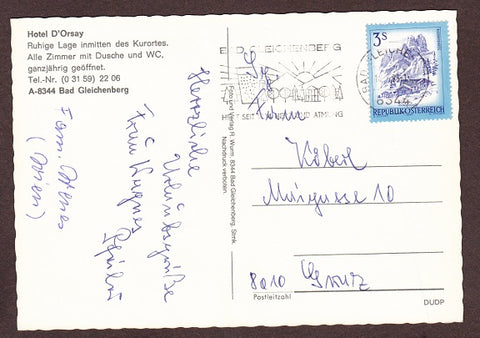 Hotel D'Orsay
Ruhige Lage inmitten des Kurortes.
Alle Zimmer mit Dusche und WC,
ganzjährig geöffnet.
Tel.-Nr. (0 31 59) 22 06
A-8344 Bad Gleichenberg
Herzliche
Urlaubsgrüße
Fam.
(Wien)
Foto und Verlag R. Wurm, 8344 Bad Gleichenberg, Stmk.
Nachdruck verboten
BAD GLEICHENBERG
HILFT SEIT
ATMUNG
BAD GLEICHENBERG
8344
3S
REPUBLIK ÖSTERREICH
Fam.
Köberl
Maigasse 10
8010 Graz
Postleitzahl
DUDP